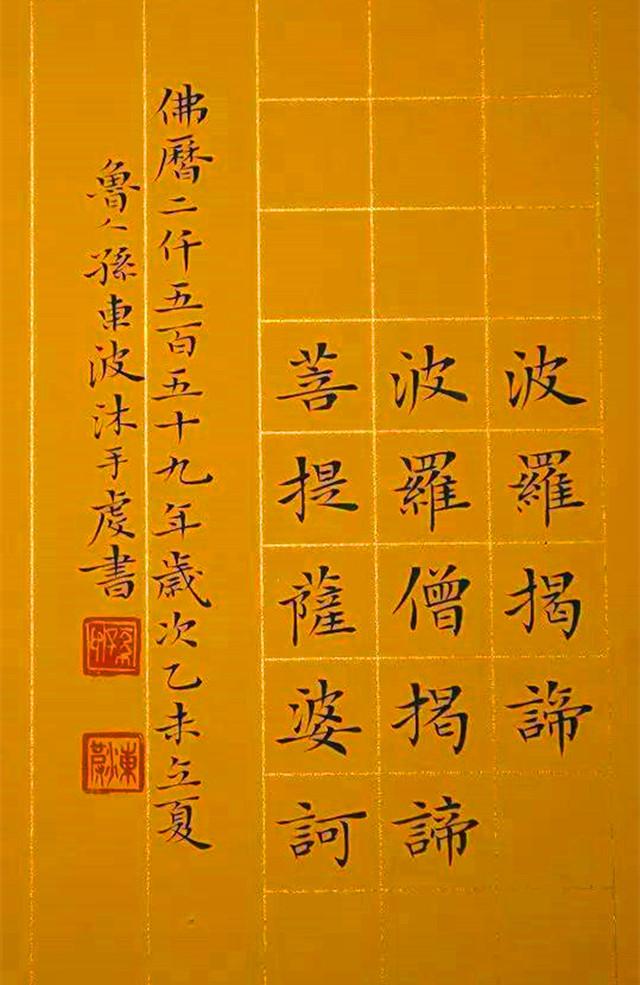 波羅揭諦
波羅僧揭諦
菩提薩婆訶
佛曆二仟五百五十九年歲次乙未立夏
魯人孫東波沐手虔書